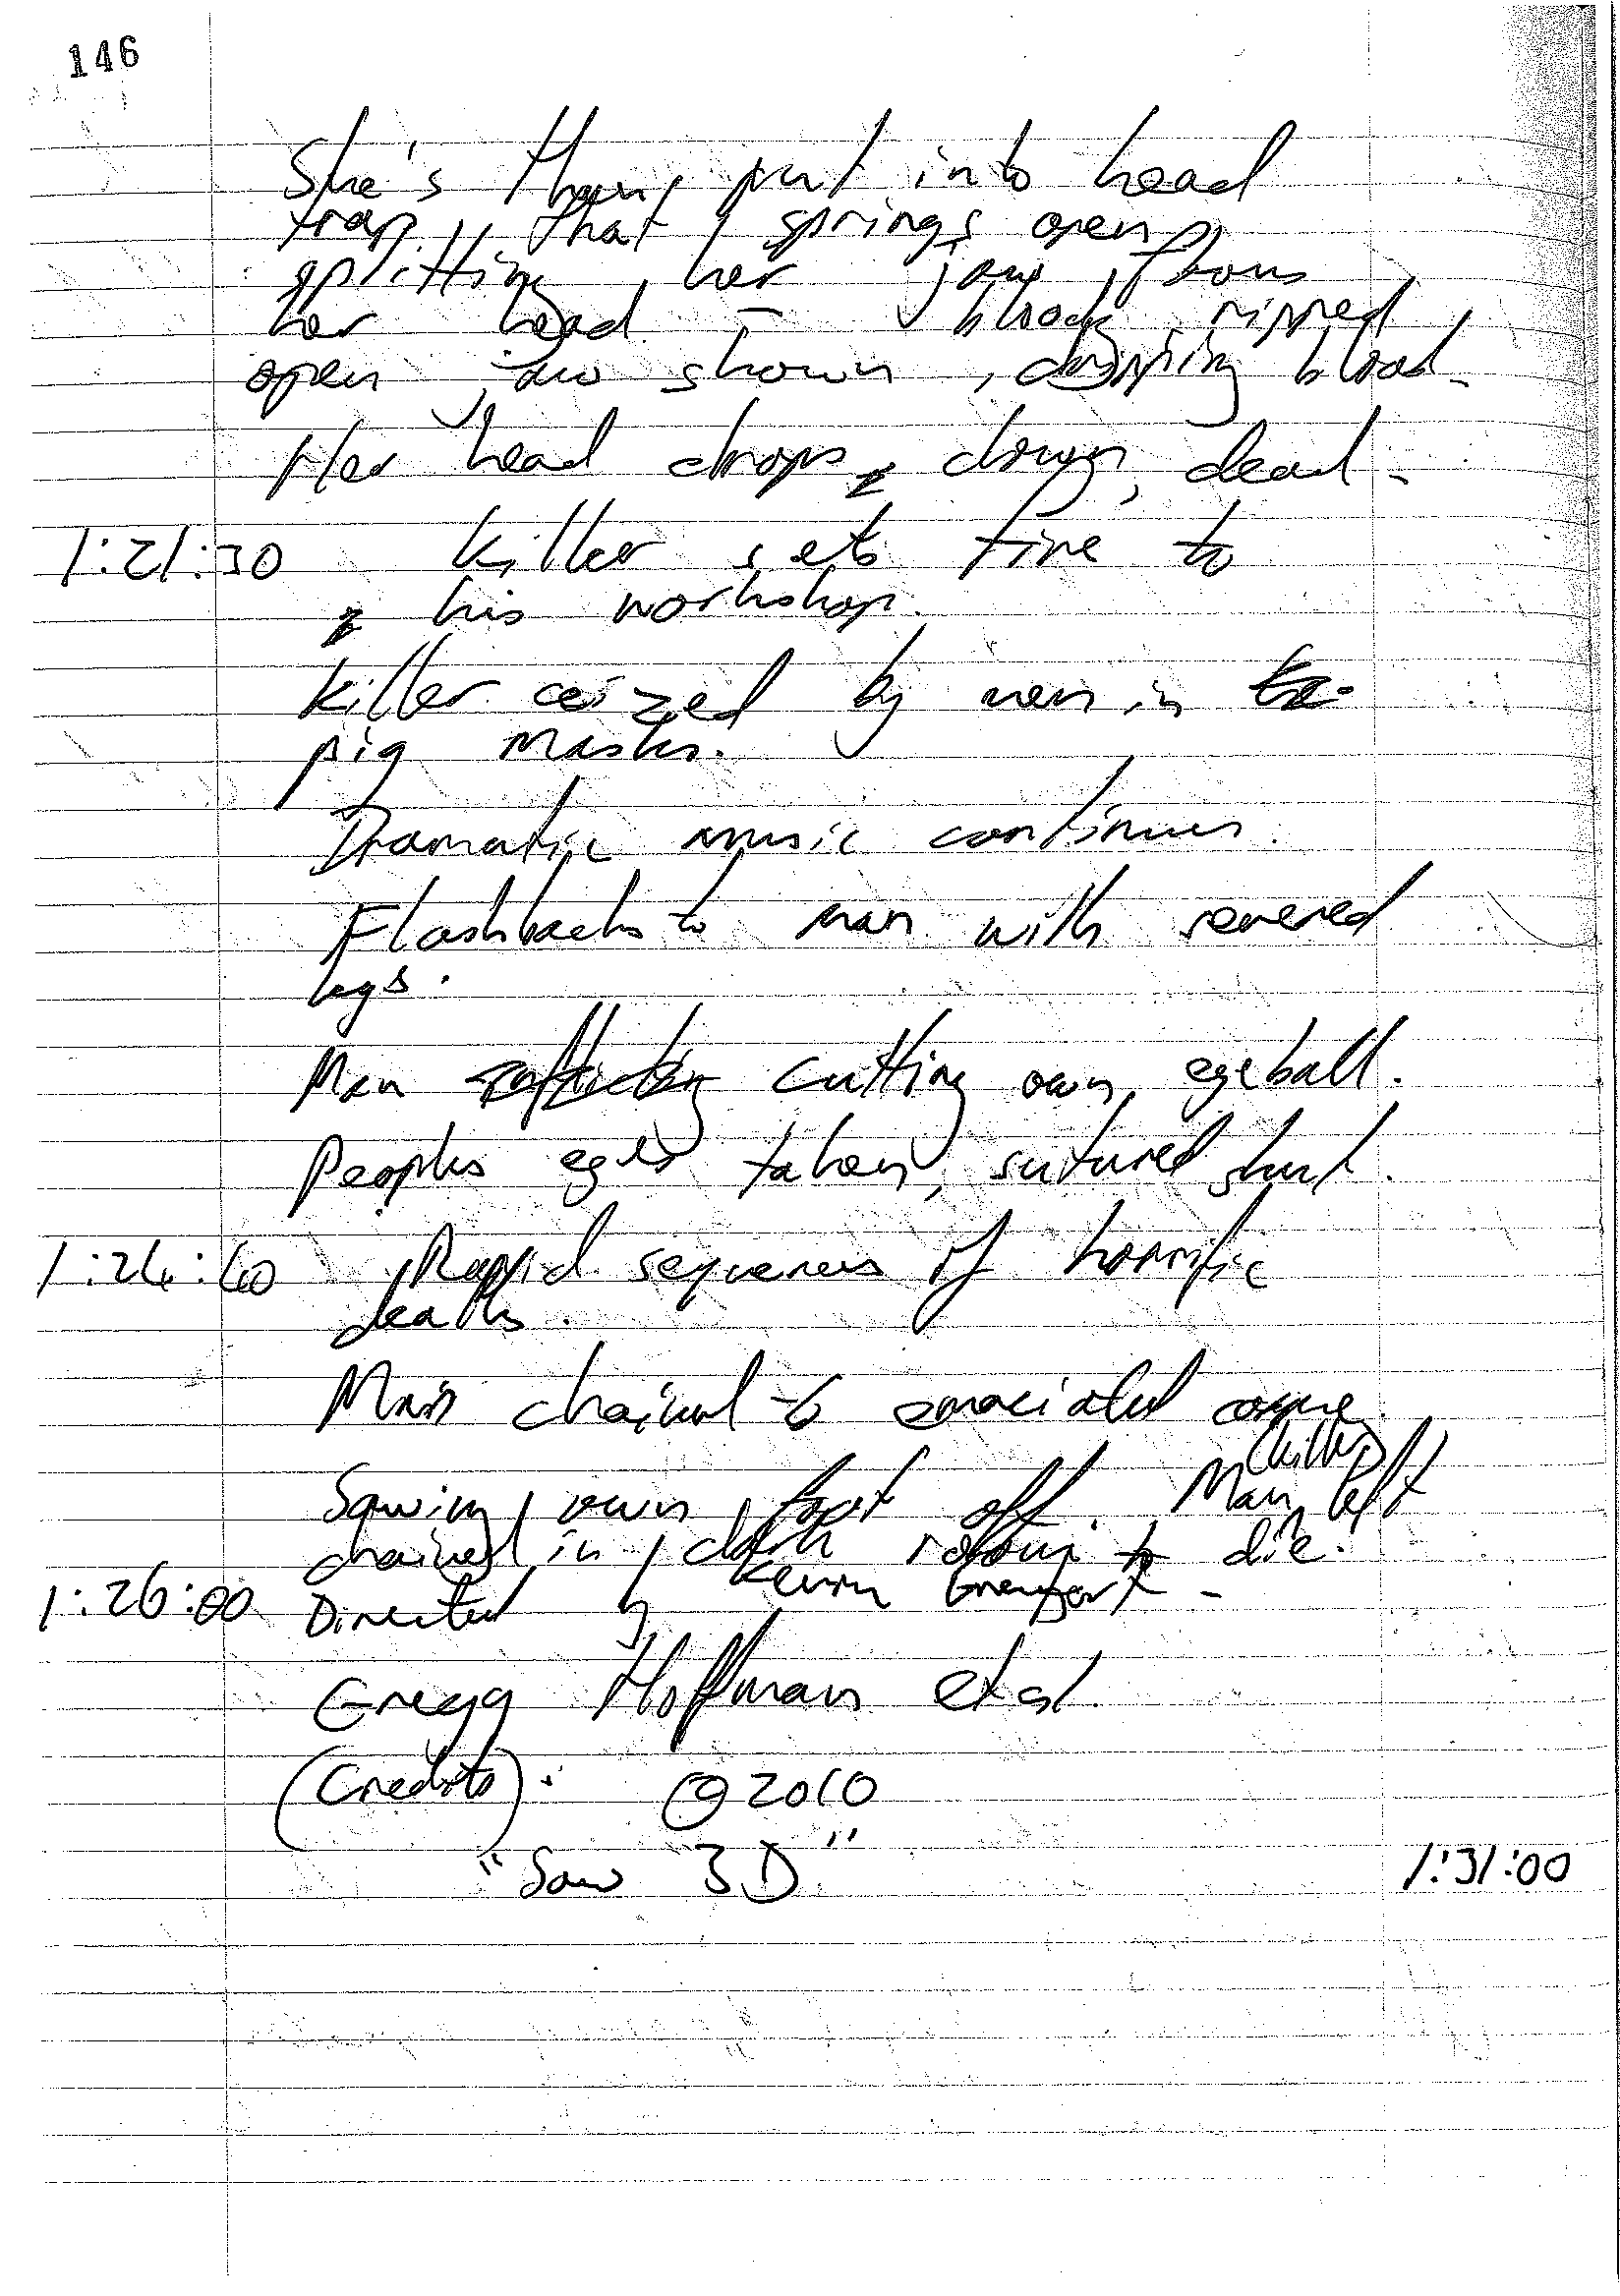 146
She's then put into head
trap, that springs open,
splitting her jaw from
her head - bloody ripped
open jaw shown, dripping blood.
Her head drops down, dead.
1:21:30 Killer sets fire to
his workshop.
Killer ceized by men in
pig masks.
Dramatic music continues.
Flashbacks to man with severed
legs.
Man cutting own eyeball.
Peoples eyes taken, sutured shut.
1:24:40 Rapid sequences of horrific
deaths.
Man chained to emaciated corpse
(killer)
Sawing own foot off. Man left
chained in dark to die.
1:26:00 Directed by Kevin Greutert -
Gregg Hoffman et al.
(Credits): © 2010
"Saw 3D" 1:31:00